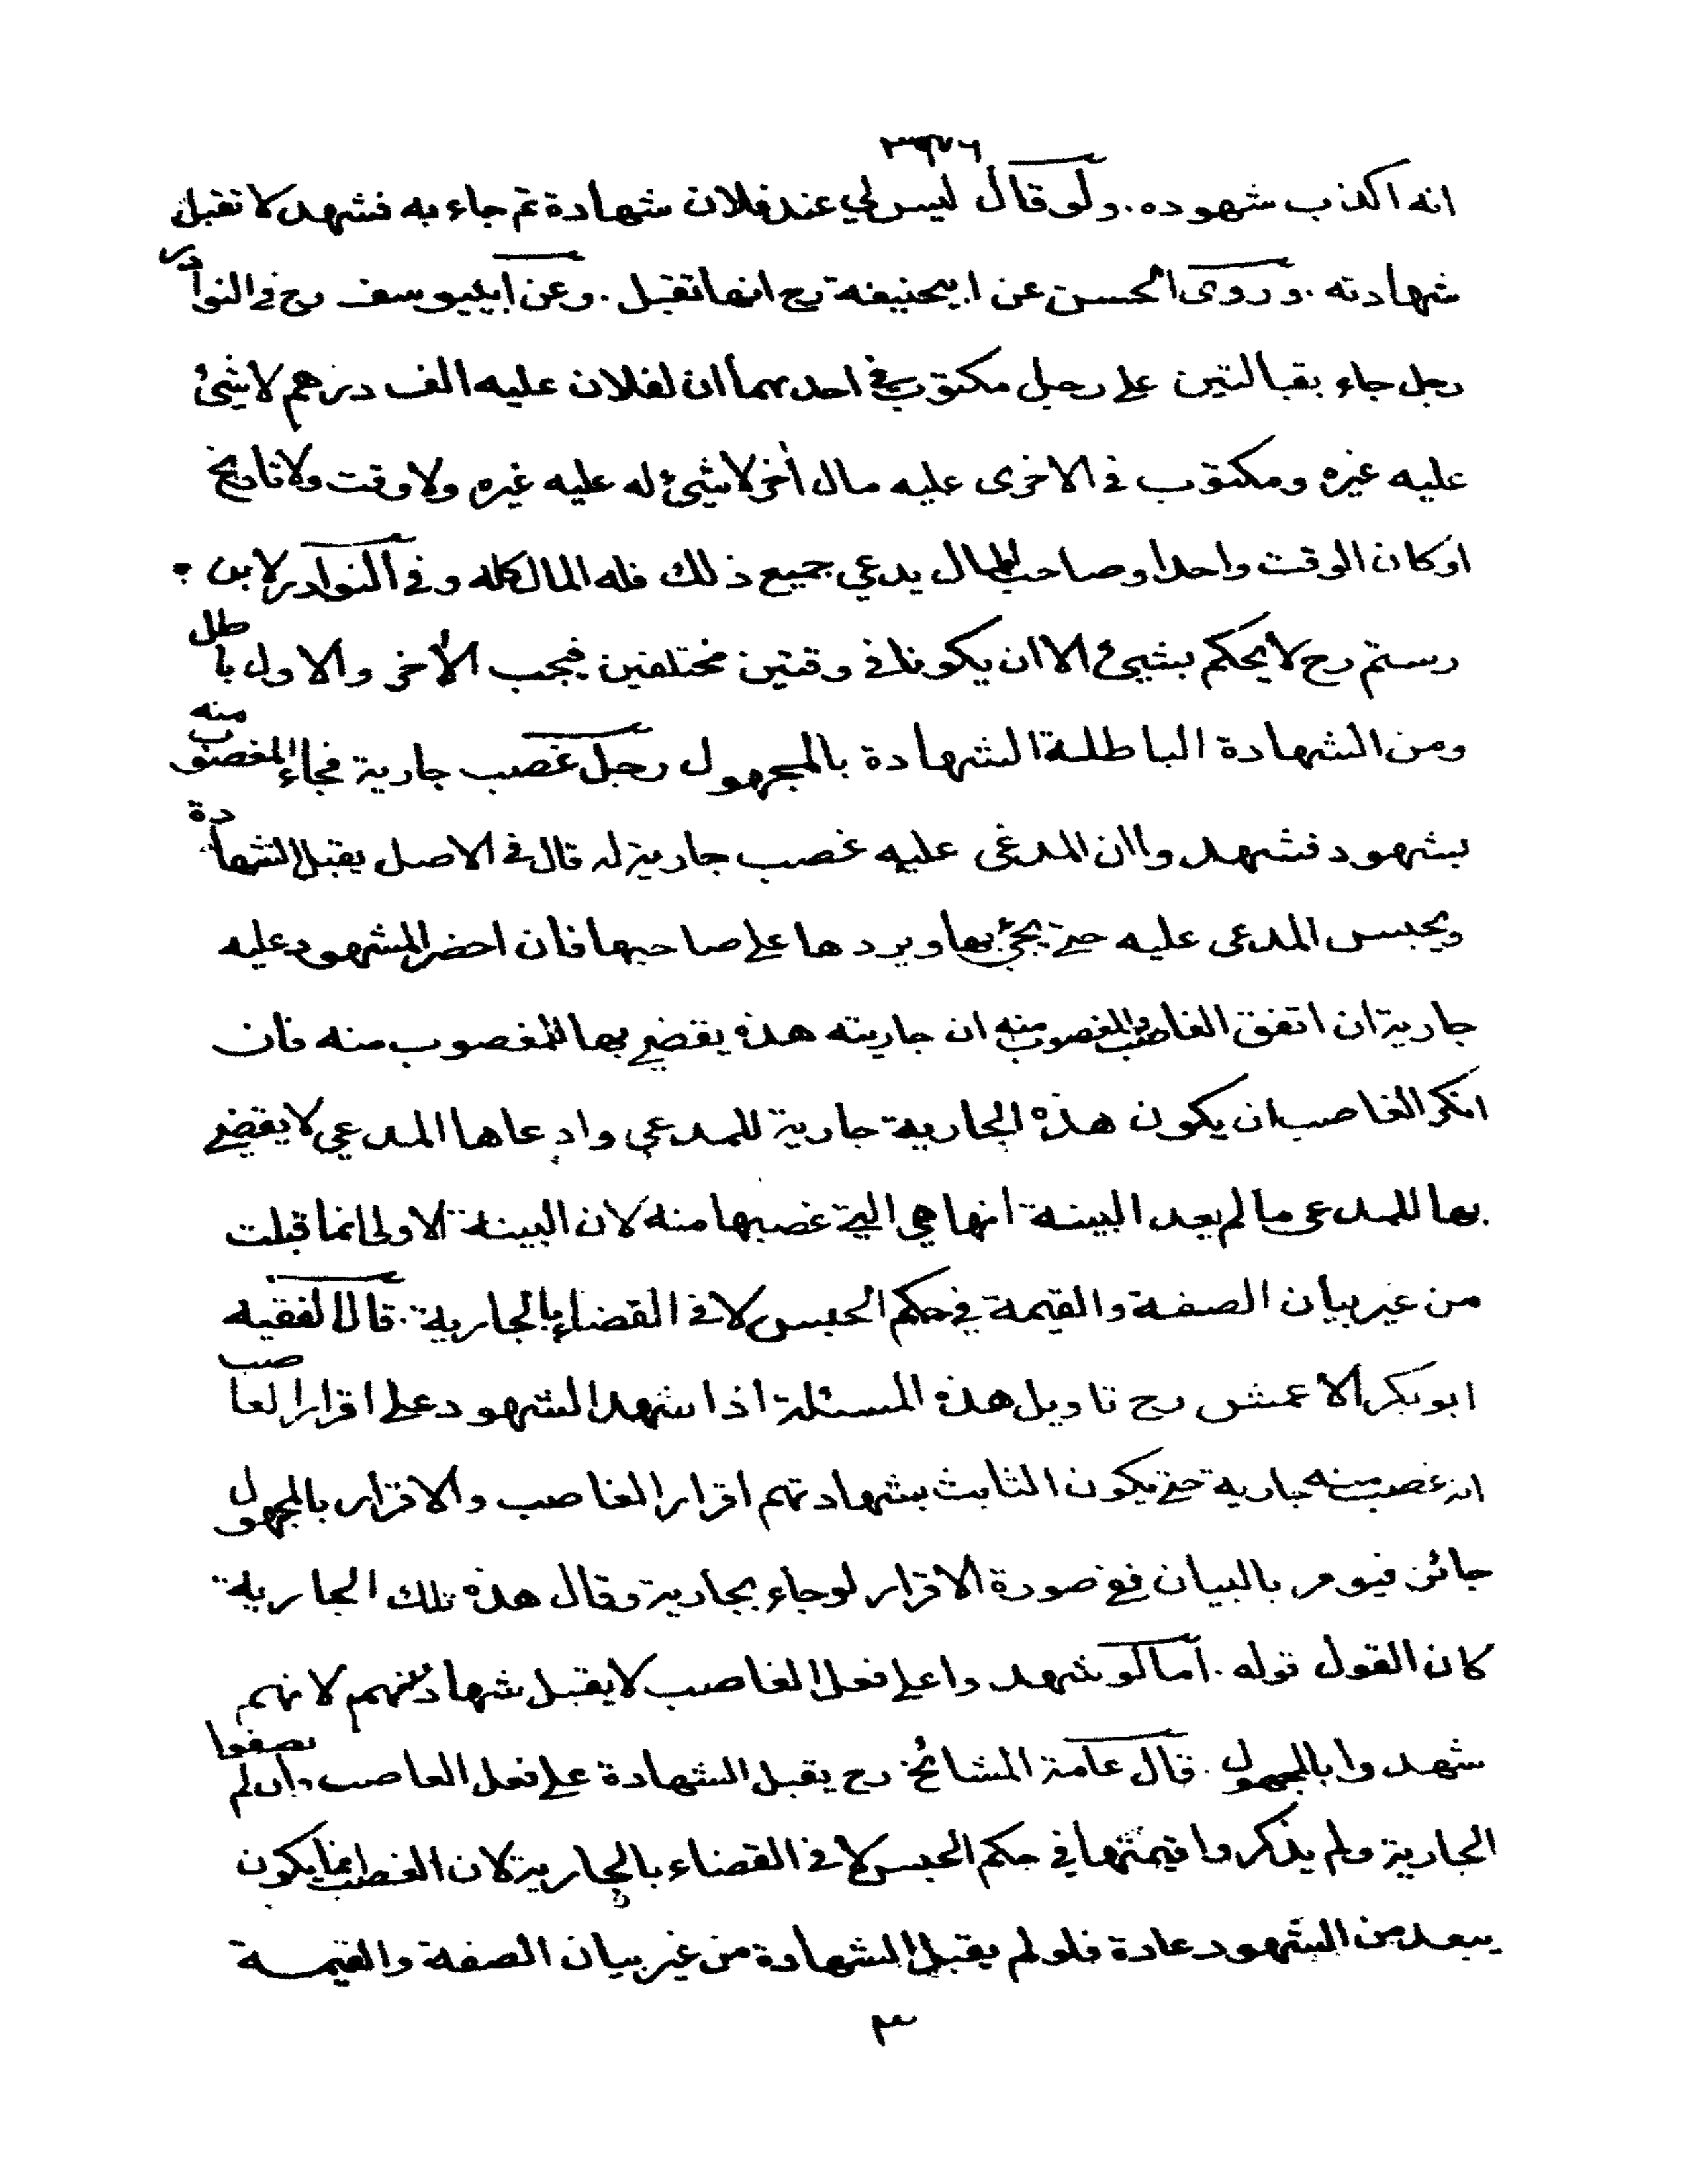 انه اكذب شهوده . ولو قال ليس لي عند فلان شهادة ثم جاء به فشهد لا تقبل
شهادته . وروى الحسن عن ابيحنيفة رح انها تقبل . وعن ابييوسف رح في النوادر
رجل جاء بقبالتين على رجل مكتوب في احدهما ان لفلان عليه الف درهم لا شيئ
عليه غيره ومكتوب في الاخرى عليه مال أخر لا شيئ له عليه غيره ولا وقت ولا تاريخ
او كان الوقت واحدا وصاحب المال يدعي جميع ذلك فله المال كله وفي النوادر لابن
رستم رح لا يحكم بشيئ الا ان يكونا في وقتين مختلفين فيجب الأخر والاول باطل
ومن الشهادة الباطلة الشهادة بالمجهول رجل غصب جارية فجاء المغصوب منه
بشهود فشهدوا ان المدعى عليه غصب جارية له قال في الاصل يقبل الشهادة
ويحبس المدعى عليه حتى يجئ بها ويردها على صاحبها فان احضر المشهود عليه
جارية ان اتفق الغاصب والمغصوب منه ان جاريته هذه يقضي بها للمغصوب منه فان
انكر الغاصب ان يكون هذه الجارية جارية للمدعي وادعاها المدعي لا يقضي
بها للمدعى ما لم يعد البينة انها هي التي غصبها منه لان البينة الاولى انما قبلت
من غير بيان الصفة والقيمة في حكم الحبس لا في القضاء بالجارية . قال الفقيه
ابو بكر الاعمش رح تاويل هذه المسئلة اذا شهد الشهود على اقرار الغاصب
انه غصب منه جارية حتى يكون الثابت بشهادتهم اقرار الغاصب والاقرار بالمجهول
جائز فيومر بالبيان ففي صورة الاقرار لو جاء بجارية وقال هذه تلك الجارية
كان القول قوله . اما لو شهدوا على فعل الغاصب لا يقبل شهادتهم لانهم
شهدوا بالمجهول . قال عامة المشائخ رح يقبل الشهادة على فعل الغاصب وان لم يصفوا
الجارية ولم يذكروا قيمتها في حكم الحبس لا في القضاء بالجارية لان الغصب انما يكون
يبعد من الشهود عادة فلو لم يقبل الشهادة من غير بيان الصفة والقيمة